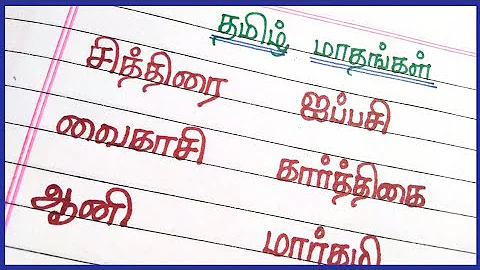 தமிழ் மாதங்கள்
சித்திரை ஐப்பசி
வைகாசி கார்த்திகை
ஆனி மார்கழி